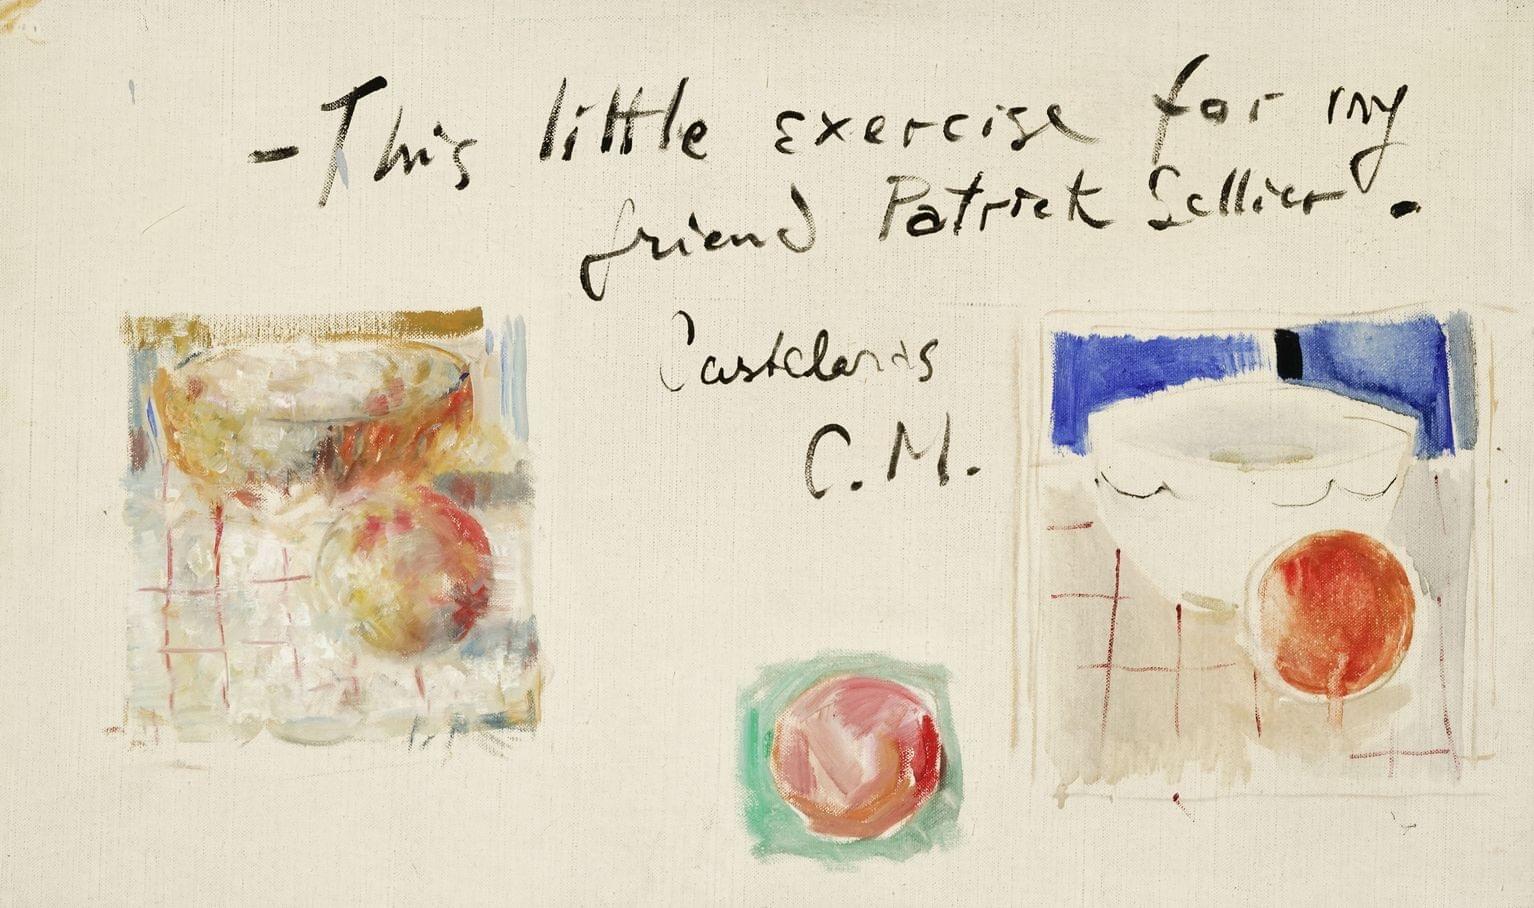 - This little exercise for my
friend Patrick Sellier.
Castelaras
C.M.